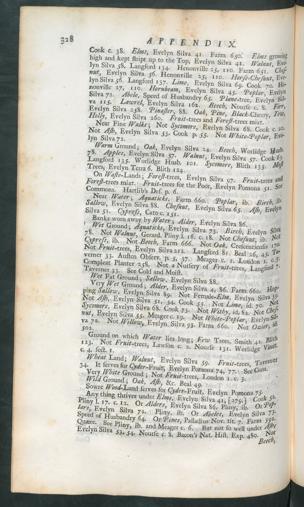 328
APPENDIX.
Cook c. 38. Elms, Evelyn Silva 41. Farm 650. Elms growing
high and kept stript up to the Top, Evelyn Silva 41. Walnut, Eve-
lyn Silva 58. Langford 134. Henonville 25, 110. Farm 651. Ches-
nut, Evelyn Silva 56. Henonville 25, 110. Horse-Chesnut, Eve-
lyn Silva 56. Langford 137. Lime, Evelyn Silva 69. Cook 70. He-
nonville 27, 110. Hornbeam, Evelyn Silva 45. Poplar, Evelyn
Silva 72. Abele, Speed of Husbandry 65. Plane-tree, Evelyn Sil-
va 115. Laurel, Evelyn Silva 162. Beech, Nourse c. 8. Firs,
Evelyn Silva 258. Pinaster, 88. Oak, Pine, Black-Cherry, Yew,
Holly, Evelyn Silva 260. Fruit-trees and Forest-trees mixt.
Near Fine Walks; Not Sycomore, Evelyn Silva 68. Cook c. 20.
Not Ash, Evelyn Silva 53. Cook p. 55. Not White-Poplar, Eve-
lyn Silva 72.
Warm Ground; Oak, Evelyn Silva 24. Beech, Worlidge Husb.
78. Apples, Evelyn Silva 37. Walnut, Evelyn Silva 57. Cook 63
Langford 135. Worlidge Husb. 101. Sycomore, Blith. 133. Most
Trees, Evelyn Terra 6. Blith 124.
On Waste-Lands; Forest-trees, Evelyn Silva 97. Fruit-trees and
Forest-trees mixt. Fruit-trees for the Poor, Evelyn Pomona 51. See
Commons. Hartlib's Def. p. 6.
Near Water; Aquaticks, Farm 660. Poplar, ib. Beech, ib.
Sallow, Evelyn Silva 88. Chesnut, Evelyn Silva 65. Ash, Evelyn
Silva 51. Cypress, Gatto c. 151.
Banks worn away by Water; Alder, Evelyn Silva 86.
Wet Ground; Aquaticks, Evelyn Silva 75. Birch, Evelyn Silva
78. Not Walnut, Gerard, Pliny l. 16. c. 18. Not Chesnut, ib. Not
Cypress, ib. Not Beech, Farm 666. Not Oak,
Not Fruit-trees, Evelyn Silva 212. Langford 81. Beal 26, 43. Ta-
verner 33. Austen Observ. p. 5, 37. Meager c. 1. London
Compleat Planter 238. Not a Nursery of Fruit-trees, Langford 7.
Taverner 33. See Cold and Moist.
Wet Fat Ground; Sallow, Evelyn Silva 88.
Very Wet Ground; Alder, Evelyn Silva 41, 86. Farm 660. Hop-
ping Sallow, Evelyn Silva 89. Not Female-Elm, Evelyn Silva 39.
Not Ash, Evelyn Silva 52, 54. Cook 55. Not Lime, id. 70. Not
Sycomore, Evelyn Silva 68. Cook 73. Not Withy, id. 82. Not Ches-
nut, Evelyn Silva 55. Meager c. 19. Not White-Poplar, Evelyn Sil-
va 72. Not Willow, Evelyn Silva 93. Farm 660. Not Ozier, id.
502.
Ground on which Water lies long; Few Trees, Smith 41. Blith
123. Not Fruit-trees, London c. 2. Nourse 131. Worlidge Vinet.
c. 4. sect. 1.
Wheat Land; Walnut, Evelyn Silva 59. Fruit-trees, Taverner
34. It serves for Cyder-Fruit, Evelyn Pomona 74, 77. See Corn.
Very White Ground; Not Fruit-trees, London l. c. 3.
Wild Ground; Oak, Ash, &c. Beal 49.
Sowre Wood-Land serves for Cyder-Fruit, Evelyn Pomona 75.
Any thing thrives under Elms, Evelyn Silva 41, [279.] Cook 52.
Pliny l. 17. c. 12. Or Alders, Evelyn Silva 86. Pliny, ib. Or Pop-
lars, Evelyn Silva 72. Pliny, ib. Or Abeles, Evelyn Silva 73.
Speed of Husbandry 64. Or Pines, Palladius Nov. tit. 7. Farm 572.
Quære. See Pliny, ib. and Meager c. 6. But not so well under Ashes,
Evelyn Silva 53, 54. Nourse c. 8. Bacon's Nat. Hist. Exp. 480. Nor
Beech,